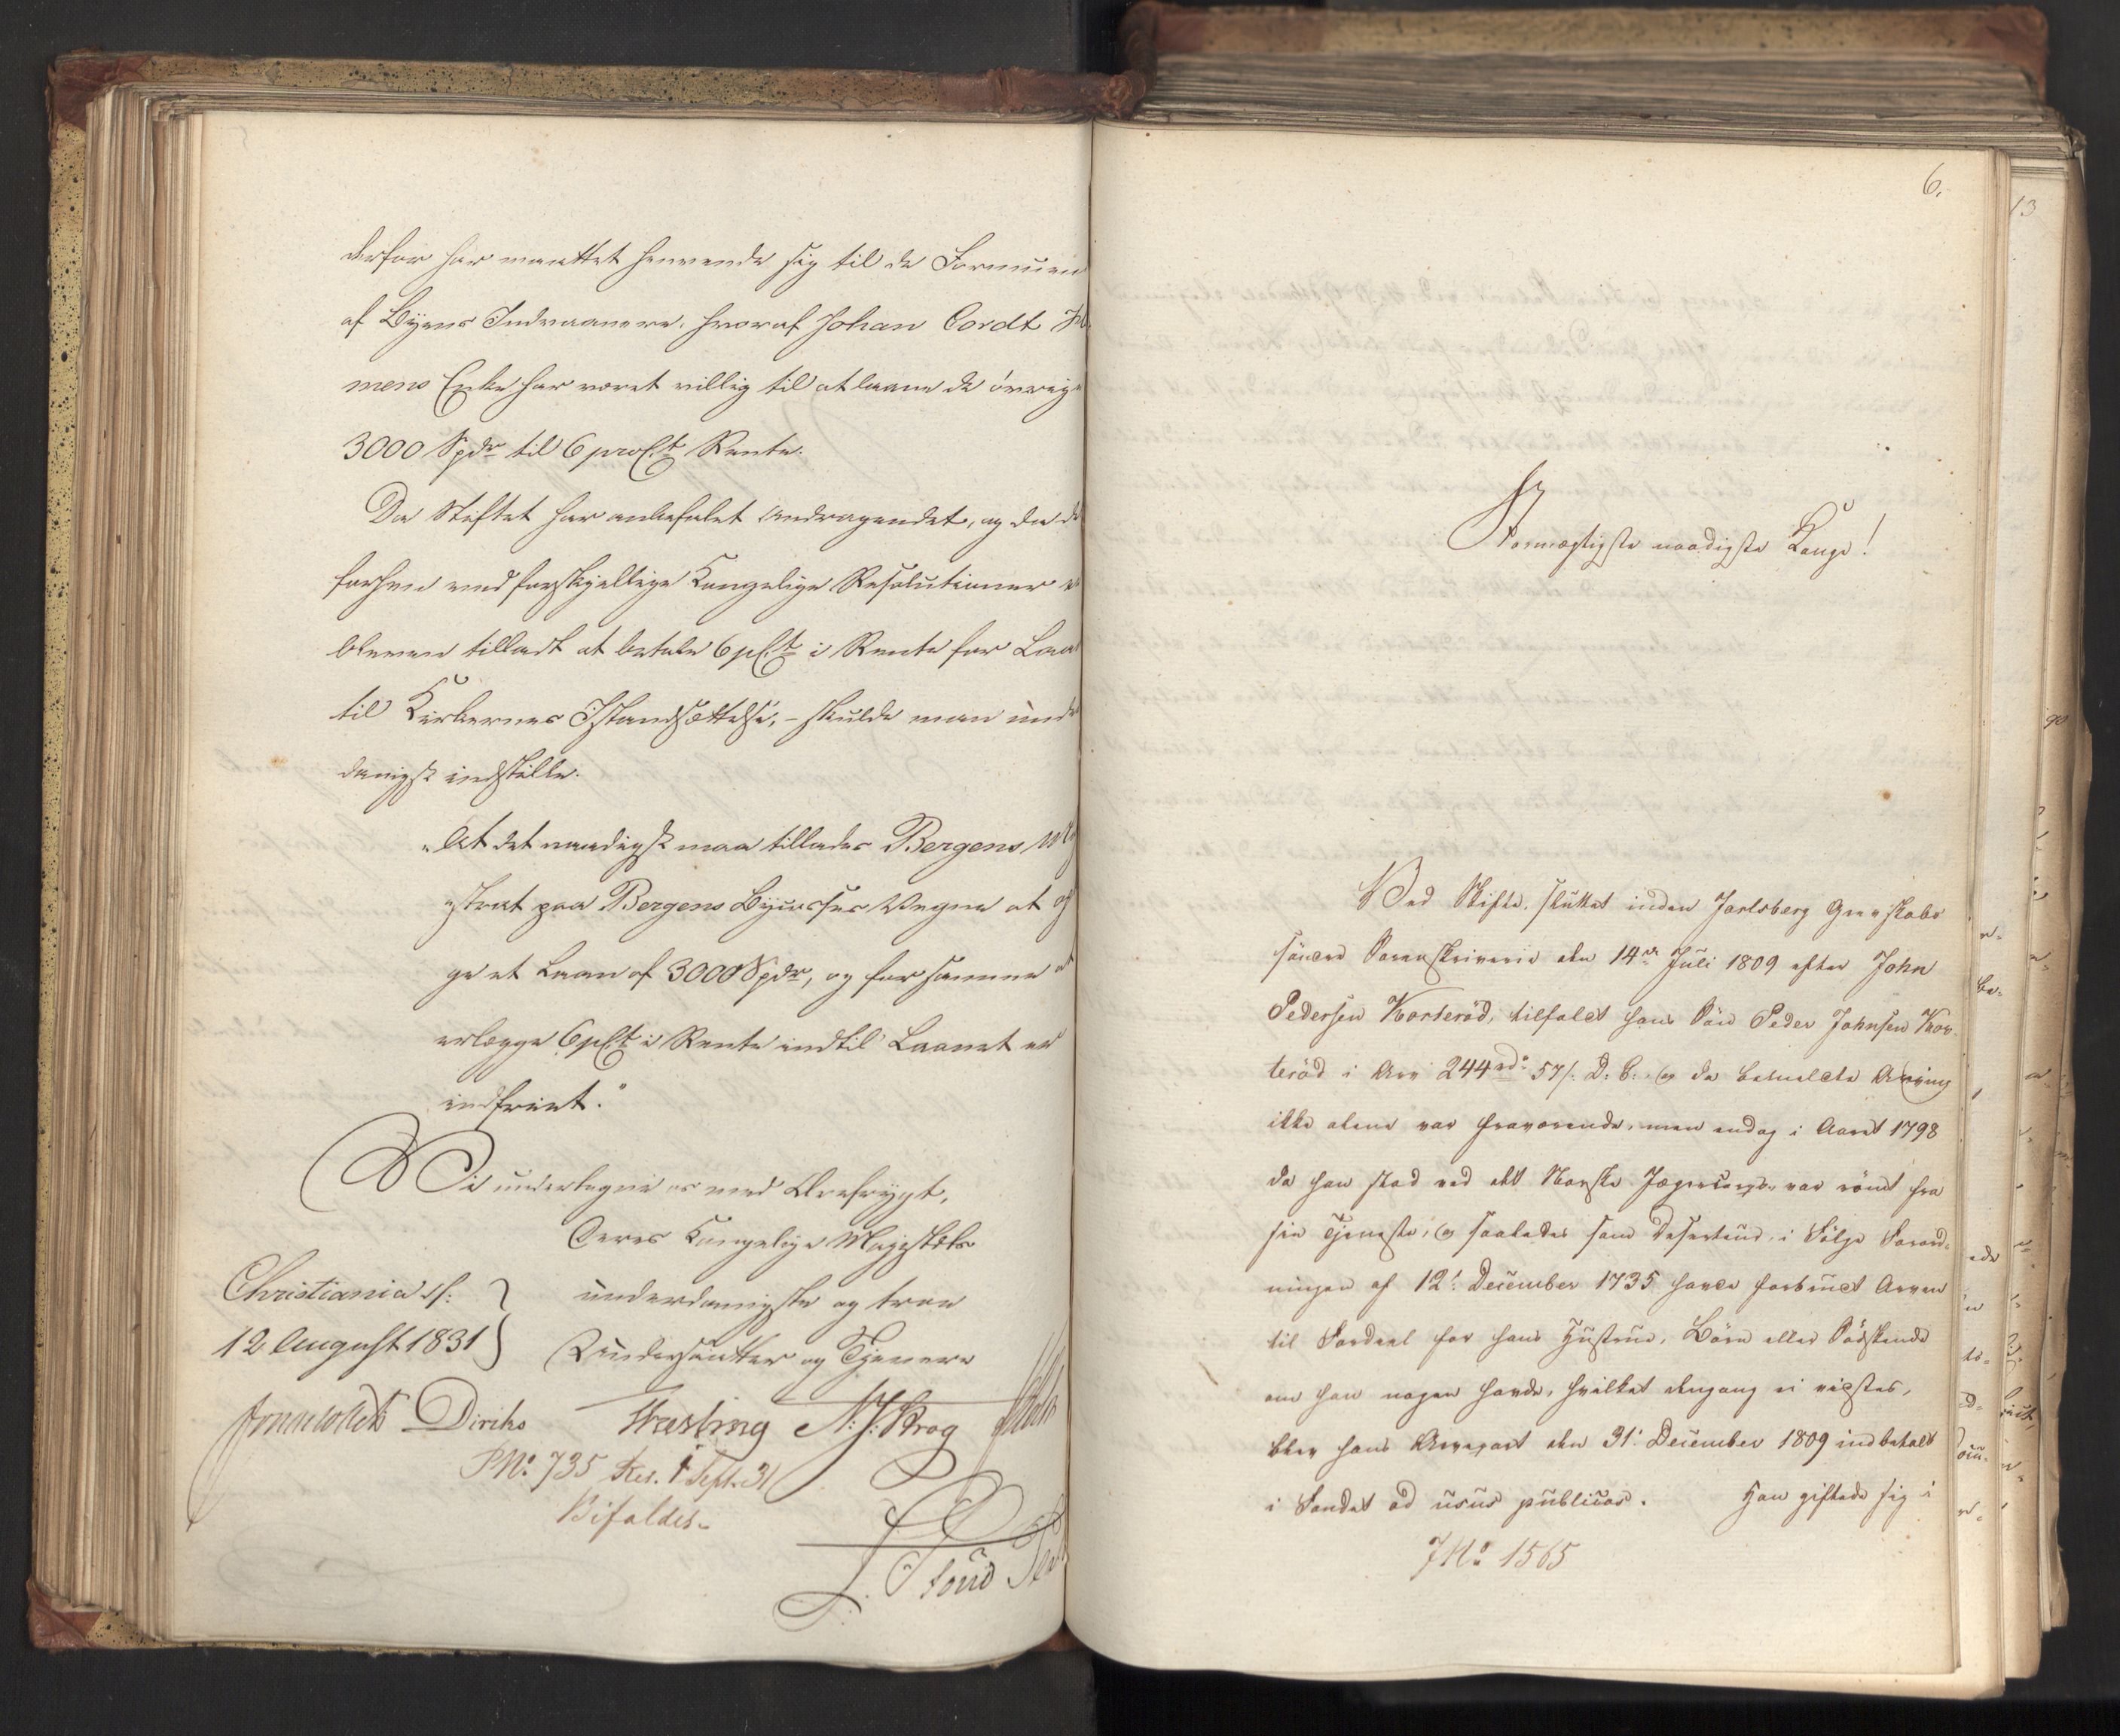 derfor har maattet henvende sig til de Formuen
af Byens Indvaanere, hvoraf Johan Cordt
mens Enke har været villig til at laane de övrige
3000 Spdr til 6 proCt Rente.
Da Stiftet har anbefalet Andragendet, og da de
forhen ved forskjellige Kongelige Resolutioner e
bleven tilladt at betale 6 pCt i Rente for Laa
til Kirkernes Istandsættelse, - skulde man unde
danigst indstille:
"At det naadigst maa tillades Bergens Mag
istrat paa Bergens Byes Vegne at op
ge et Laan af 3000 Spdr, og for samme at
erlægge 6 pCt i Rente indtil Laanet er
indfriet."
Vi undertegne os med Ærefrygt,
Deres Kongelige Majestæts
Christiania d:
underdanigste og troe
12 August 1831
Undersaatter og Tjenere
Diriks N: J: Krog
PNo. 735 Res. 1 Sept. 31
Bifaldes.
6.
13
Stormægtigste naadigste Konge!
Ved Skifte, sluttet inden Jarlsberg Grevskabs
söndre Sorenskriverie den 14de Juli 1809 efter John
Pedersen Korteröd, tilfaldt hans Sön Peder Johnsen Kor-
teröd i Arv 244 rd. 57 s. D: C: og da bemeldte Arving
ikke alene var fraværende, men endog i Aaret 1798
da han stod ved det Norske Jægercorps, var römt fra
sin Tjeneste, og saaledes som Deserteur, i Fölge Forord-
ningen af 12. December 1735 havde forbrudt Arven
til Fordeel for hans Hustrue, Börn eller Södskende
om han nogen havde, hvilket dengang ei vidstes,
blev hans Arvepart den 31. December 1809 indbetalt
i Fondet ad usus publicos. Han giftede sig i
JNo. 1565